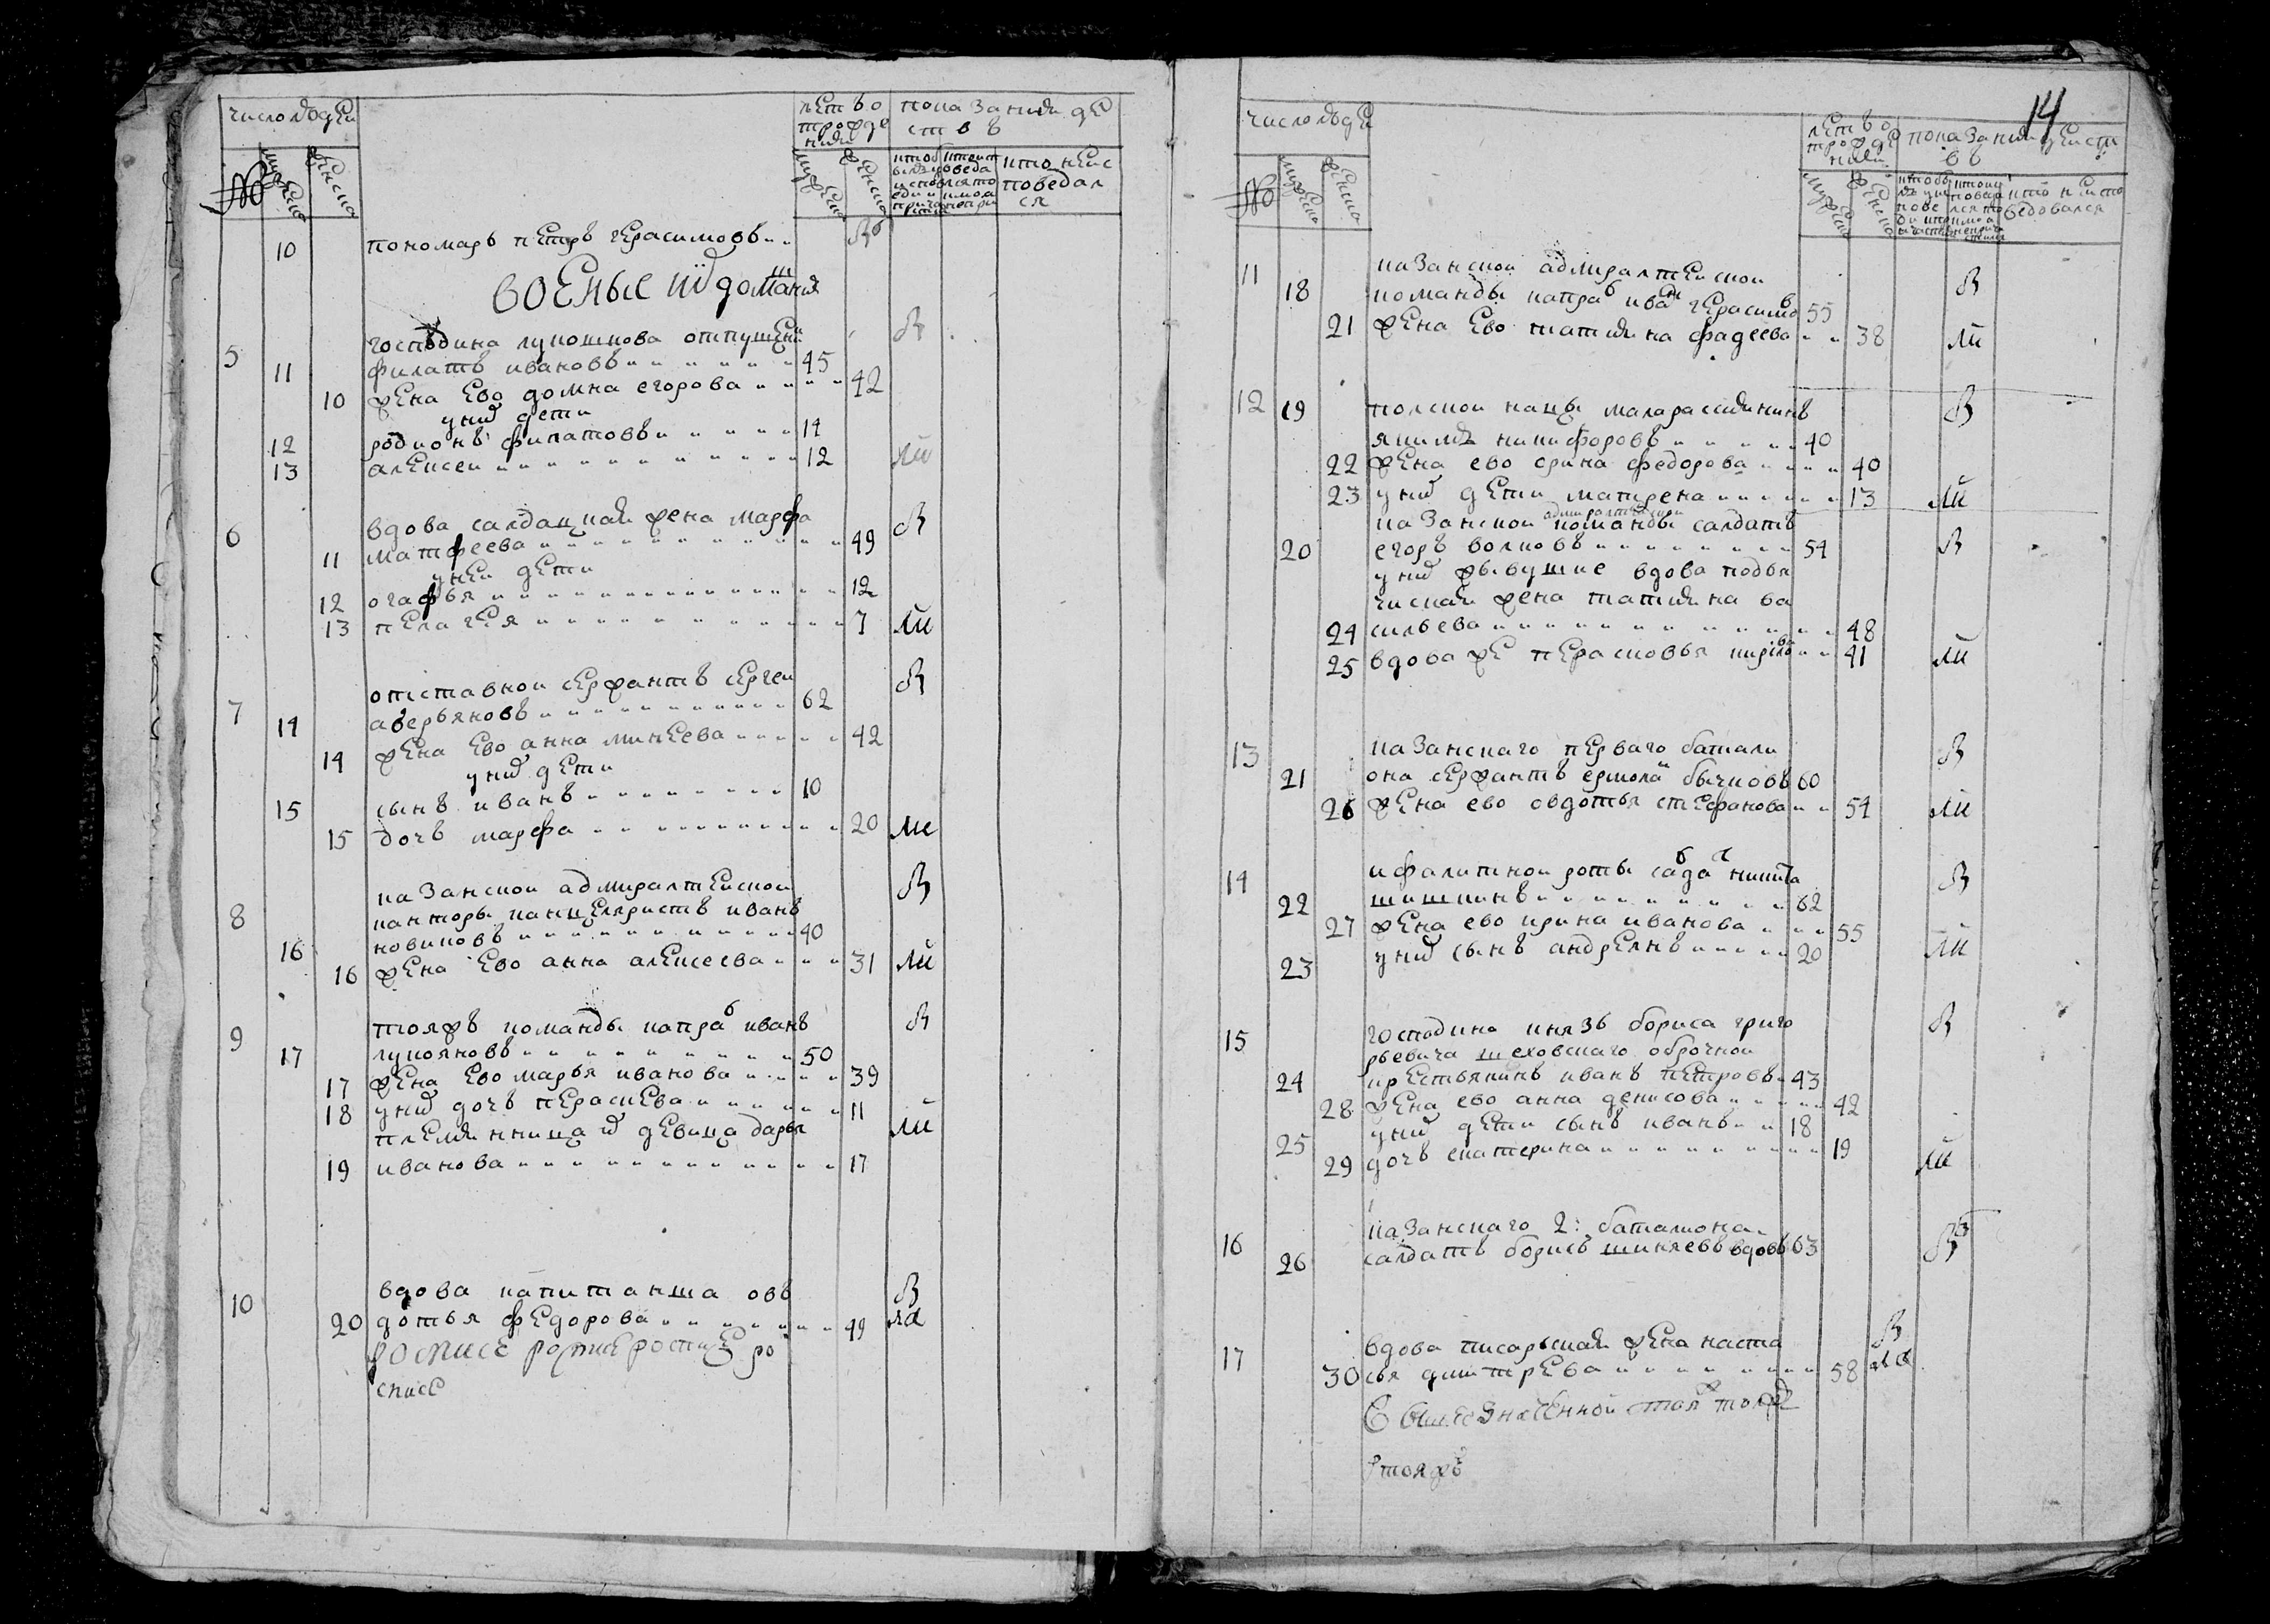 число людеи
летъ о
трожде
ния
показания де
ств в
№
мужеска
женска
мужеска
женска
кто неис
поведал
ся
10 пономарь петръ герасимовъ
военые их домаш
господина лукошкова отпущен
5 11 филатъ ивановъ 45
10 жена ево домна егорова 42
у них дети
12 родионъ филатовъ 14
13 алексеи 12
вдова салдацкая жена марфа
6 11 матфеева 49
у неи дети
12 огафья 12
13 пелагея 7
отставнои сержантъ сергеи
7 14 аверьяновъ 62
14 жена ево анна минеева 42
у них дети
15 сынъ иванъ 10
15 дочь марфа 20
казанскои адмиралтеискои
8 канторы канцеляристъ иванъ
16 новиковъ 40
16 жена ево анна алексеева 31
9 тояжъ команды капра иванъ
17 лукояновъ 50
17 жена ево марья иванова 39
18 у них дочь пераскева 11
племянница их девица дарья
19 иванова 17
10 вдова капитанша овъ
20 дотья федорова 49
14
число людеи
летъ о
трожде
ния
показания деиств
в
№
мужеска
женска
мужеска
женска
кто не испо
ведовался
11 казанскои адмиралтеискои
18 команды капра иван герасимов 55
21 жена ево татияна фадеева 38
12 19 полскои нацы малароссиянинъ
якимъ никифоровъ 40
22 жена ево орина федорова 40
23 у них дети матрена 13
адмиралтеискои
казанскои команды салдатъ
20 егоръ волковъ 54
у них живущие вдова подъя
ческая жена татияна ва
24 сильева 48
25 вдова же перасковья кирилова 41
13 казанскаго перваго батали
21 она сержантъ ермолаи бычковъ 60
26 жена ево овдотья стефанова 54
14 ифалитнои роты садат никита
22 шишкинъ 62
27 жена ево ирина иванова 55
23 у них сынъ андреянъ 20
15 господина князь бориса григо
рьевича шеховскаго оброчнои
24 крестьянинъ иванъ петровъ 43
28 жена ево анна денисова 42
25 у них дети сынъ иванъ 18
29 дочь екатерина 19
казанскаго 2: баталиона
16 26 салдатъ борисъ шикяевъ вдовъ 63
17 вдова писарьская жена наста
30 сья дмитрева 58